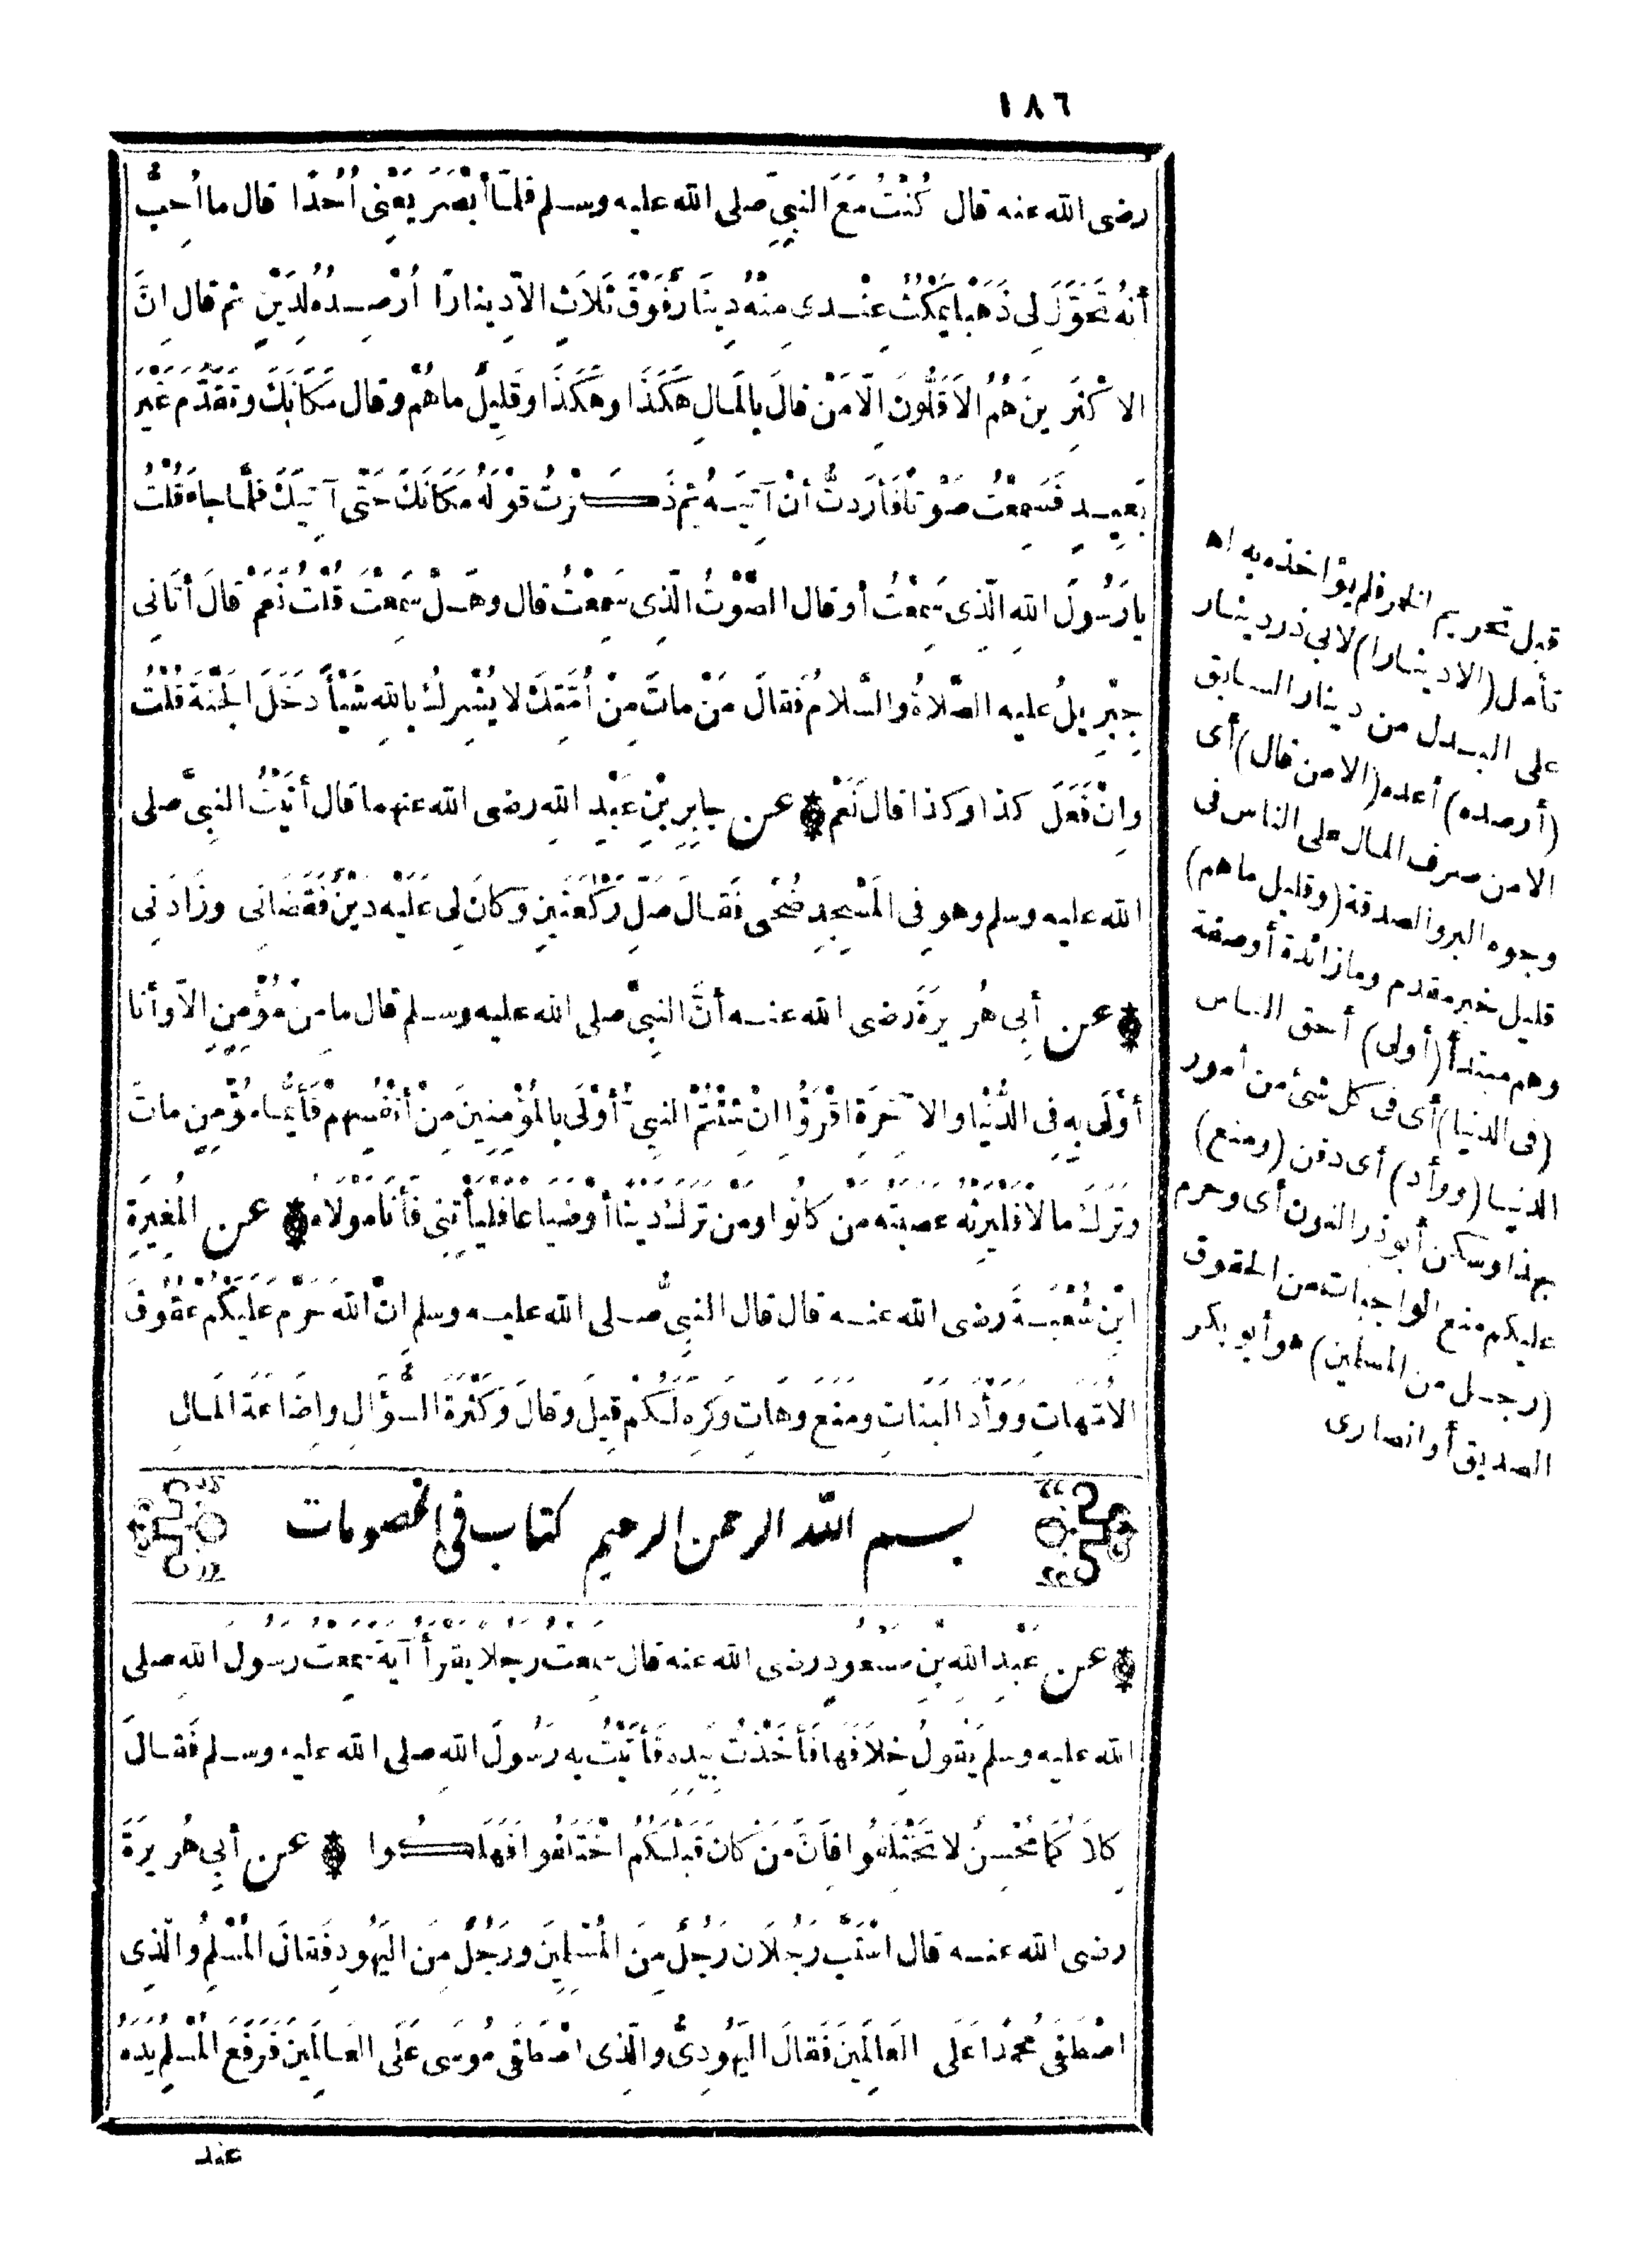 ١٨٦
رضى الله عنه قال كُنْتُ مَعَ النبىِّ صلى الله عليه وسلم فلمَّا أَبْصَرَ يَعْنِى أُحُدًا قال ما أُحِبُّ
أَنَّهُ تَحَوَّلَ لِى ذَهَبًا يَمْكُثُ عِنْدى مِنْهُ دِينَارٌ فَوْقَ ثَلَاثٍ الَّا دِينارًا أُرْصِدُهُ لِدَيْنٍ ثم قال انَّ
الاكْثَرِينَ هُمُ الاَقَلُّونَ الَّا مَنْ قالَ بِالمَالِ هَكَذَا وهَكَذَا وقَلِيلٌ ما هُمْ وقال مَكَانَكَ وتَقَدَّمَ غَيْرَ
بَعِيدٍ فَسَمِعْتُ صَوْتًا فَأَرَدتُّ أنْ آتِيَهُ ثم ذَكَرْتُ قَوْلَهُ مَكَانَكَ حَتَّى آتِيَكَ فلمَّا جاءَ قُلْتُ
يا رَسُولَ اللهِ الَّذِى سَمِعْتُ أو قال الصَّوْتُ الَّذِى سَمِعْتُ قال وهَلْ سَمِعْتَ قُلْتُ نَعَمْ قالَ أتَانِى
جِبْرِيلُ عليه الصَّلاةُ والسَّلامُ فَقالَ مَنْ ماتَ مِنْ أُمَّتِكَ لا يُشْرِكُ بِاللهِ شَيْأً دَخَلَ الجَنَّةَ قُلْتُ
وانْ فَعَلَ كذا وكذا قال نَعَمْ عن جابِرِ بْنِ عَبْدِ اللهِ رضى الله عنهما قال أتَيْتُ النبِىَّ صلى
الله عليه وسلم وهو فى المَسْجِدِ ضُحًى فَقالَ صَلِّ رَكْعَتَيْنِ وكانَ لِى عَلَيْهِ دَيْنٌ فَقَضَانِى وزَادَنِى
عن أبِى هُرَيرَةَ رضى الله عنه أنَّ النبِىَّ صلى الله عليه وسلم قال ما مِنْ مُؤْمِنٍ الَّا وأنا
أوْلَى بِهِ فِى الدُّنْيا والا خِرَةِ اقْرَؤُا انْ شِئْتُمْ النبِىُّ أوْلَى بِالمُؤْمِنِينَ مِنْ أنْفُسِهِمْ فَأيُّما مُؤْمِنٍ ماتَ
وتَرَكَ مالًا فليَرِثْهُ عَصَبَتُهُ مَنْ كانُوا ومَنْ تَرَكَ دَيْنًا أوضَياعًا فَلْيَأْتِنِى فَأَنَا مَوْلَاهُ عن المُغِيرَةِ
ابْنِ شُعْبَةَ رضى الله عنه قال قال النبِىُّ صلى الله عليه وسلم انَّ اللهَ حَرَّمَ عَلَيْكُمْ عُقُوقَ
الاُمَّهاتِ ووَأْدَ البَنَاتِ ومَنَعَ وهَاتِ وكَرِهَ لَكُمْ قِيلَ وقالَ وكَثْرَةَ السُّؤَالِ واضَاعَةَ المَالِ
بسم الله الرحمن الرحيم كتاب فى الخصومات
عن عَبْدِ اللهِ بْنِ مَسْعُودٍ رضى الله عنه قال سَمِعْتُ رَجُلًا يَقْرَأُ آيَةً سَمِعْتُ رَسُولَ اللهِ صلى
الله عليه وسلم يَقُولُ خِلَافَهَا فَأَخَذْتُ بِيَدِهِ فَأَتَيْتُ بِهِ رَسُولَ اللهِ صلى الله عليه وسلم فَقالَ
كِلَا كُمَا مُحْسِنٌ لا تَخْتَلِفُوا فانَّ مَنْ كانَ قَبْلَكُمُ اخْتَلَفُوا فَهَلَكُوا عن أبِى هُرَيرَةَ
رضى الله عنه قال اسْتَبَّ رَجُلَانِ رَجُلٌ مِنَ المُسْلِمِينَ ورَجُلٌ مِنَ اليَهُودِ فَقالَ المُسْلِمُ والَّذِى
اصْطَفَى مُحَمَّدًا عَلَى العَالَمِينَ فَقالَ اليَهُودِىُّ والَّذِى اصْطَفَى مُوسَى عَلَى العَالَمِينَ فَرَفَعَ المُسْلِمُ يَدَهُ
عند
قبل تحريم الخمر فلم يؤاخذه به اه
تأمل (الا دينارا) لابى ذر دينار
على البدل من دينار السابق
(أرصده) أعده (الا من قال) أى
الا من صرف المال على الناس فى
وجوه البر والصدقة (وقليل ما هم)
قليل خبر مقدم وما زائدة أو صفة
وهم مبتدأ (أولى) أحق الناس
(فى الدنيا) أى فى كل شئ من أمور
الدنيا (ووأد) أى دفن (ومنع)
بهذا وسكن أبو ذر النون أى وحرم
عليكم منع الواجبات من الحقوق
(رجل من المسلمين) هو أبو بكر
الصديق أو انصارى